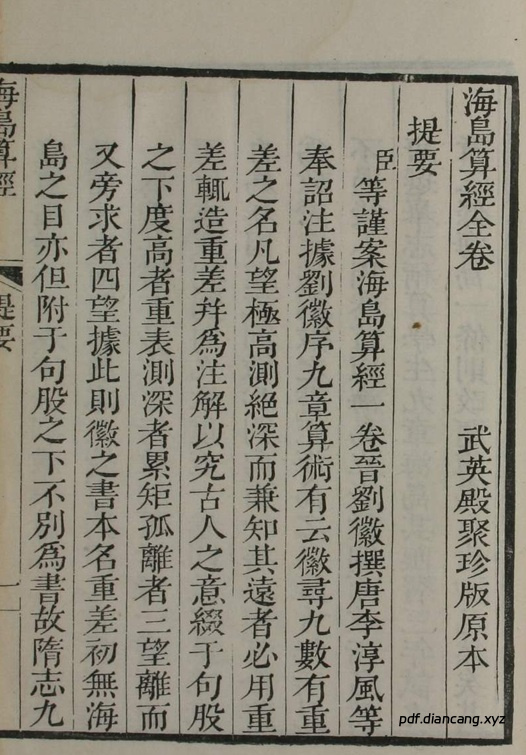 海島算經全卷　武英殿聚珍版原本
提要
臣等謹案海島算經一卷晉劉徽撰唐李淳風等
奉詔注據劉徽序九章算術有云徽尋九數有重
差之名凡望極高測絕深而兼知其遠者必用重
差輒造重差幷爲注解以究古人之意綴于句股
之下度高者重表測深者累矩孤離者三望離而
又旁求者四望據此則徽之書本名重差初無海
島之目亦但附于句股之下不別爲書故隋志九
海島算經　提要　一
pdf.diancang.xyz